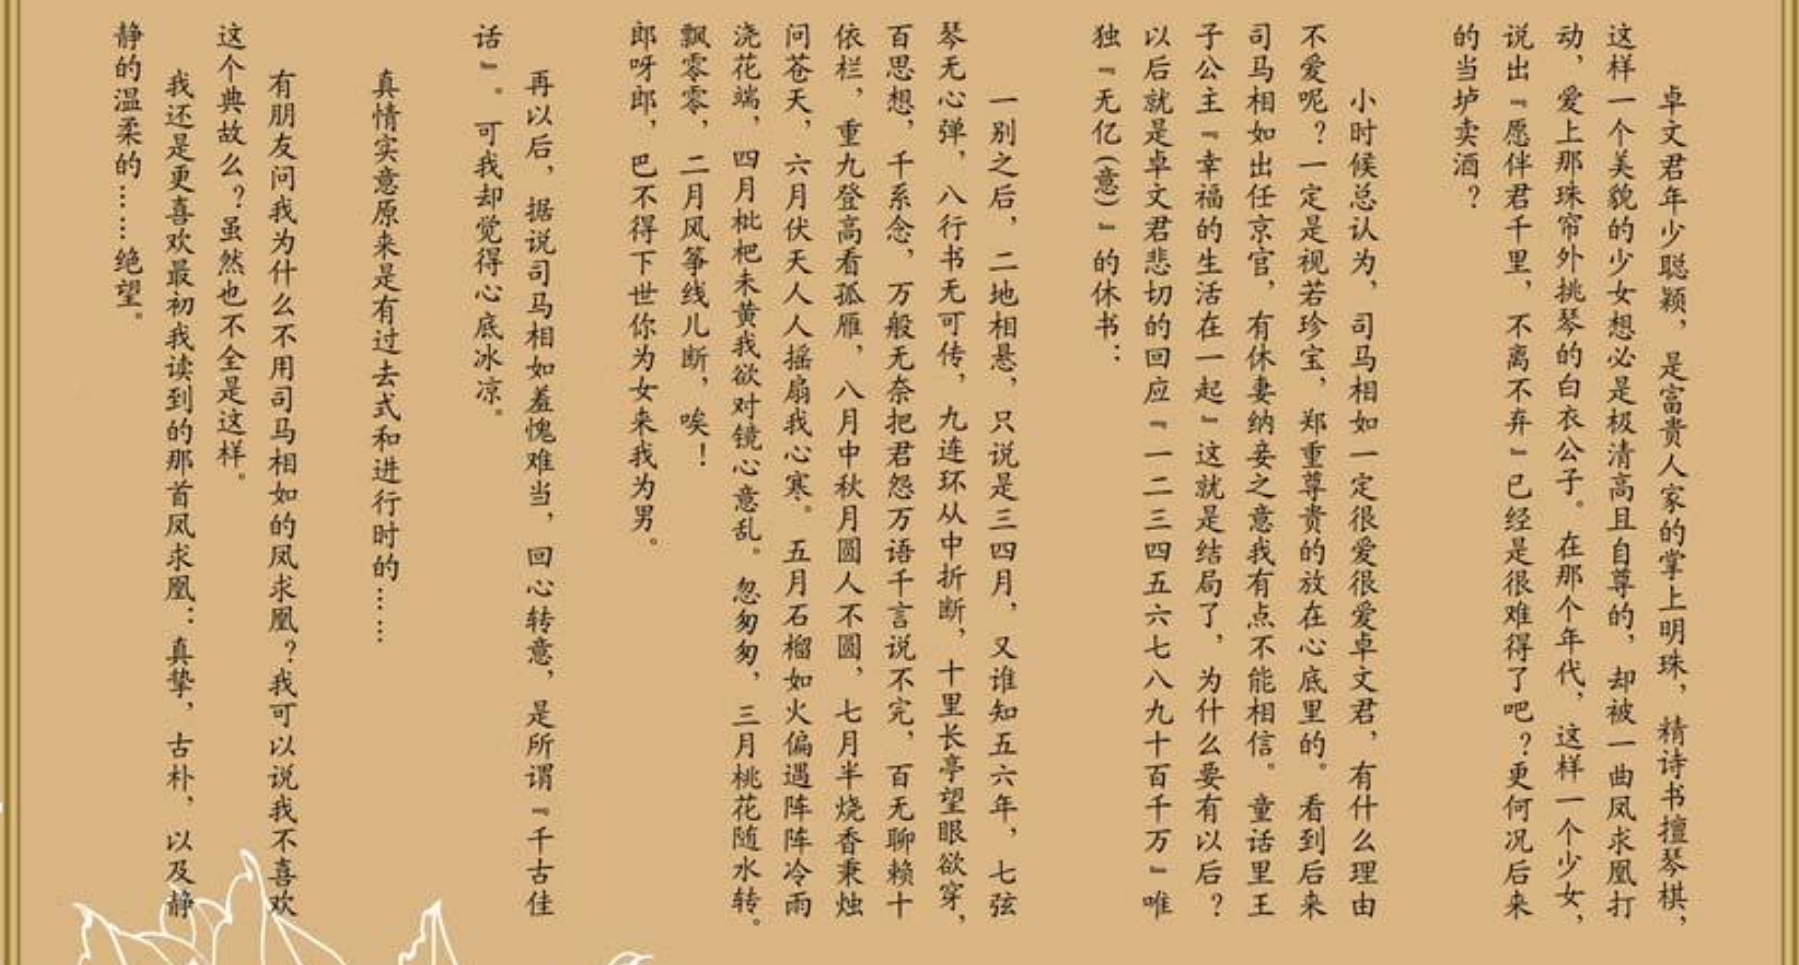 卓文君年少聪颖，是富贵人家的掌上明珠，精诗书擅琴棋，
这样一个美貌的少女想必是极清高且自尊的，却被一曲凤求凰打
动，爱上那珠帘外挑琴的白衣公子。在那个年代，这样一个少女，
说出『愿伴君千里，不离不弃』已经是很难得了吧？更何况后来
的当垆卖酒？
小时候总认为，司马相如一定很爱很爱卓文君，有什么理由
不爱呢？一定是视若珍宝，郑重尊贵的放在心底里的。看到后来
司马相如出任京官，有休妻纳妾之意我有点不能相信。童话里王
子公主『幸福的生活在一起』这就是结局了，为什么要有以后？
以后就是卓文君悲切的回应『一二三四五六七八九十百千万』唯
独『无亿(意)』的休书：
一别之后，二地相悬，只说是三四月，又谁知五六年，七弦
琴无心弹，八行书无可传，九连环从中折断，十里长亭望眼欲穿，
百思想，千系念，万般无奈把君怨万语千言说不完，百无聊赖十
依栏，重九登高看孤雁，八月中秋月圆人不圆，七月半烧香秉烛
问苍天，六月伏天人人摇扇我心寒。五月石榴如火偏遇阵阵冷雨
浇花端，四月枇杷未黄我欲对镜心意乱。忽匆匆，三月桃花随水转。
飘零零，二月风筝线儿断，唉！
郎呀郎，巴不得下世你为女来我为男。
再以后，据说司马相如羞愧难当，回心转意，是所谓『千古佳
话』。可我却觉得心底冰凉。
真情实意原来是有过去式和进行时的……
有朋友问我为什么不用司马相如的凤求凰？我可以说我不喜欢
这个典故么？虽然也不全是这样。
我还是更喜欢最初我读到的那首凤求凰：真挚，古朴，以及静
静的温柔的……绝望。